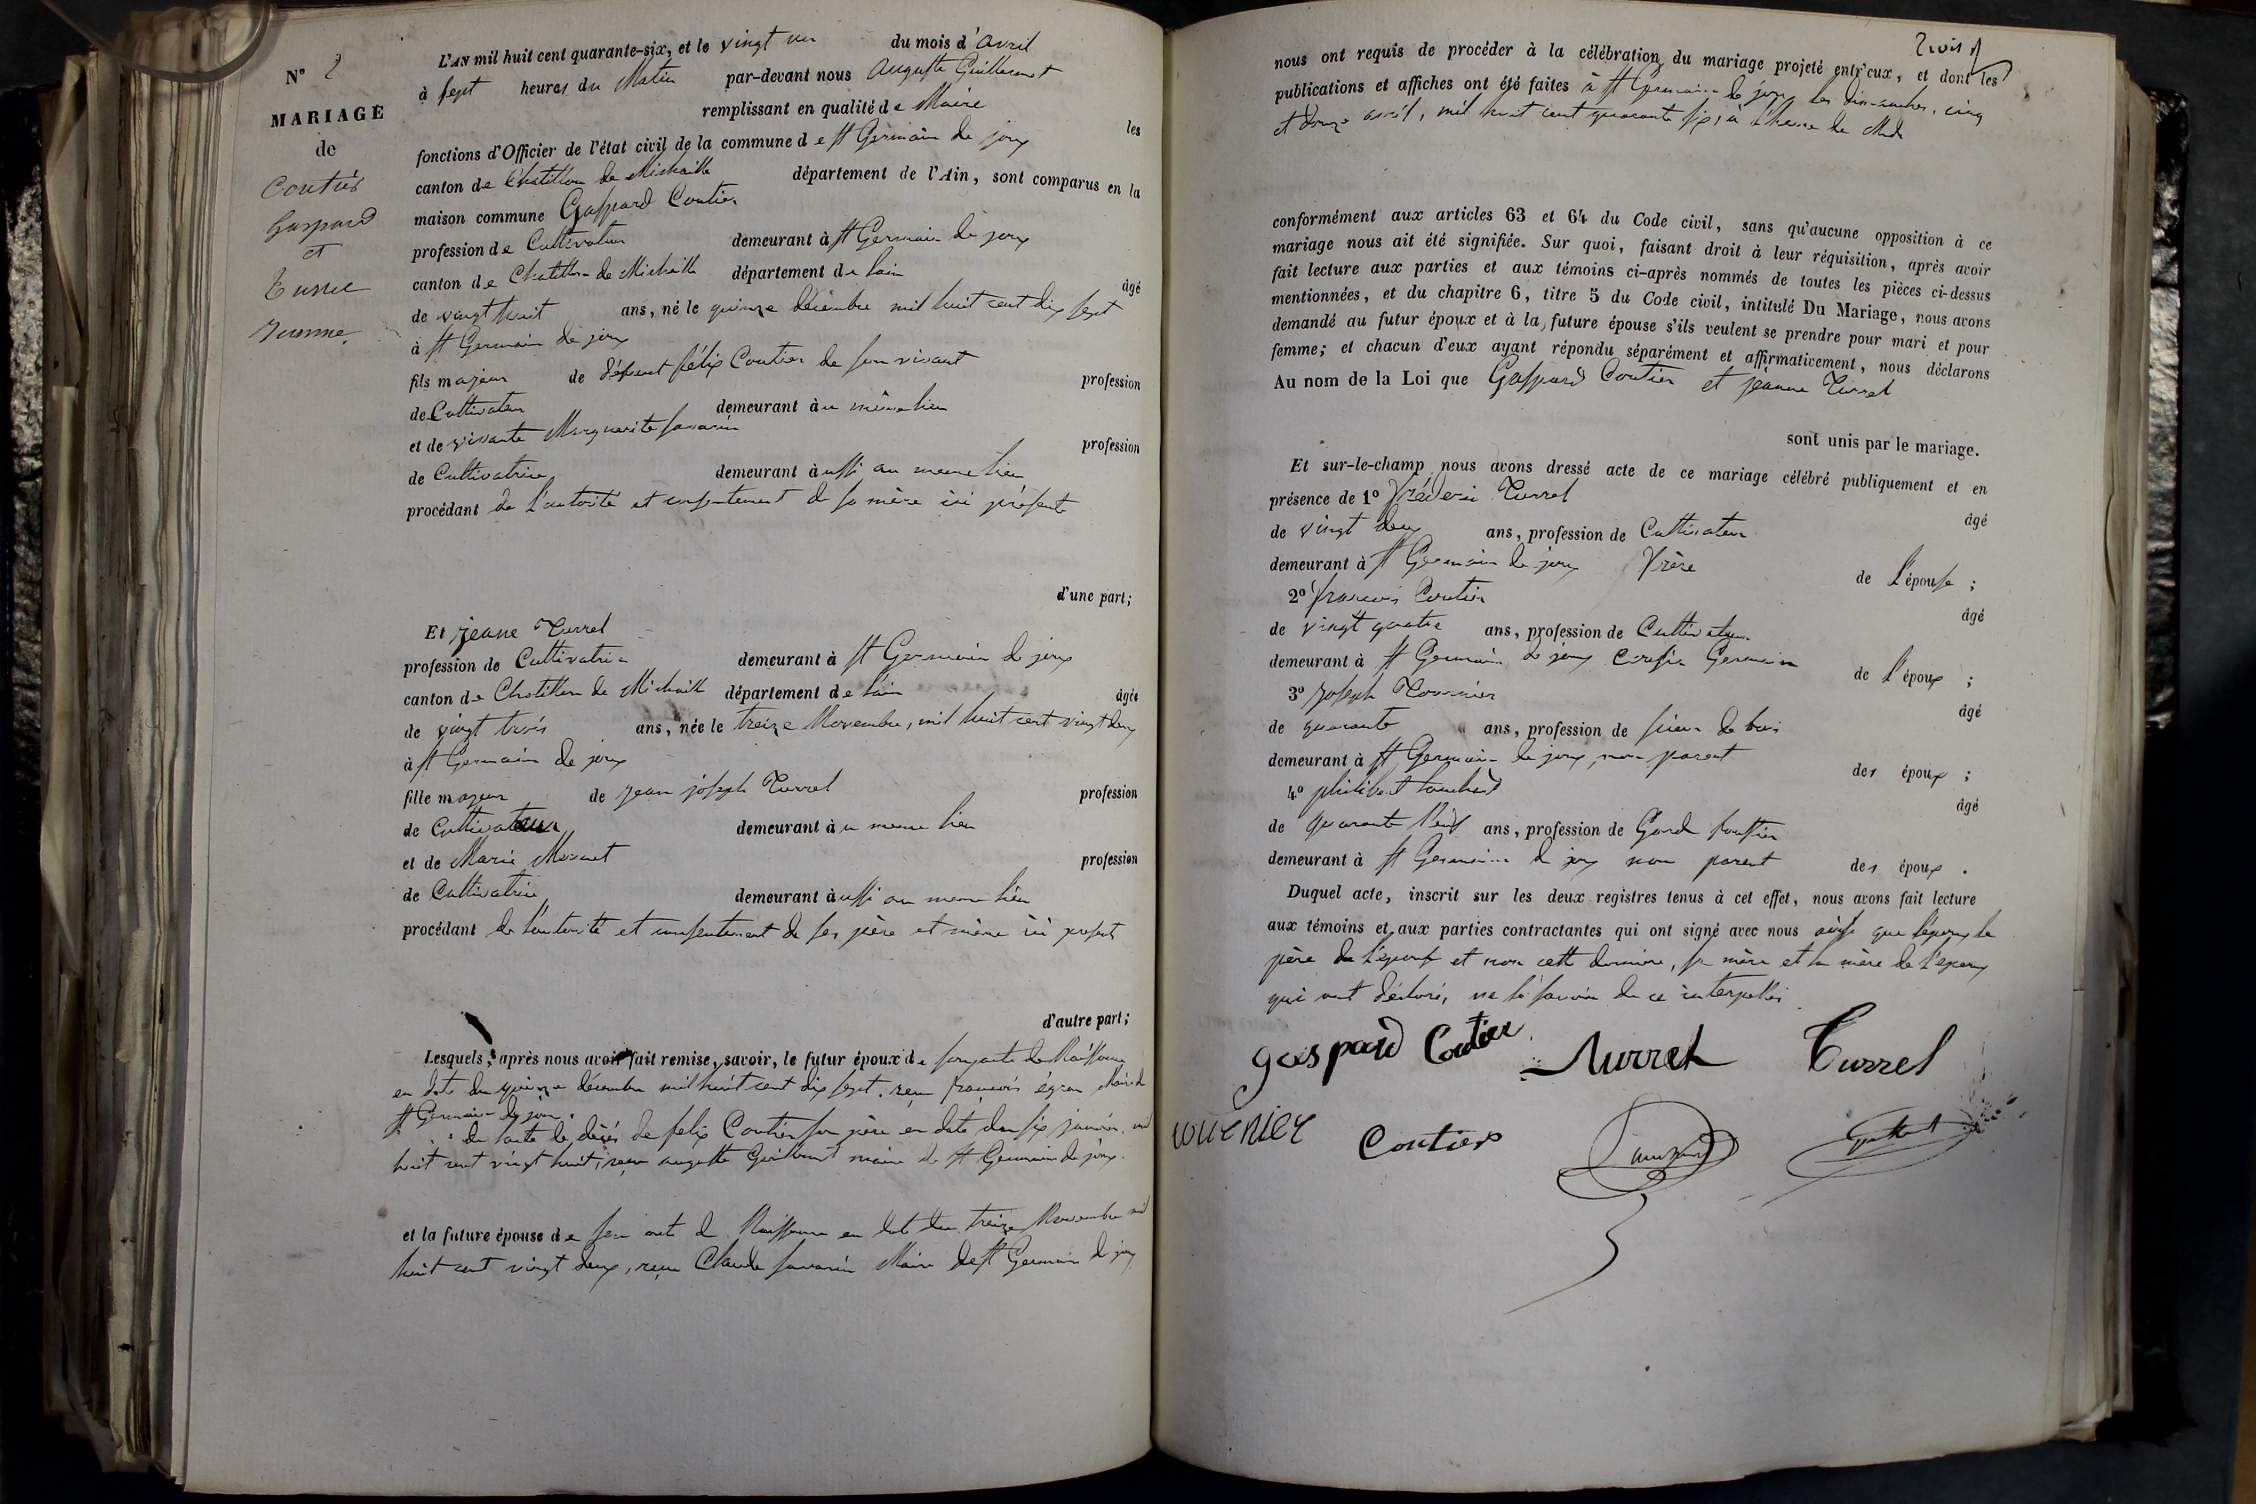 N° 2
MARIAGE
de
Coutier
Gaspard
et
Turrel
Jeanne.
L'AN mil huit cent quarante-six, et le vingt un du mois d'avril
à sept heures du Matin par-devant nous Auguste Guillermet
remplissant en qualité de Maire les
fonctions d'Officier de l'état civil de la commune de St Germain de joux
canton de Chatillon de Michaille département de l'Ain, sont comparus en la
maison commune Gaspard Coutier
profession de Cultivateur demeurant à St Germain de joux
canton de Chatillon de Michaille département de l'ain âgé
de vingt huit ans, né le quinze décembre mil huit cent dix sept
à St Germain de joux
fils majeur de défunt félix Coutier de son vivant profession
de Cultivateur demeurant au même lieu
et de vivante Marguerite Savarin profession
de Cultivatrice demeurant aussi au meme lieu
procédant de l'autorité et consentement de sa mère ici présente
d'une part;
Et jeane Turrel
profession de Cultivatrice demeurant à St Germain de joux
canton de Chatillon de Michaille département de l'ain âgée
de vingt trois ans, née le treize Novembre, mil huit cent vingt deux
à St Germain de joux
fille majeur de jean jóseph Turrel profession
de Cultivateur demeurant au meme lieu
et de Marie profession
de Cultivatrice demeurant aussi au meme lieu
procédant de l'autorité et consentement de ses père et mère ici présents
d'autre part;
Lesquels, après nous avoir fait remise, savoir, le futur époux de son acte de Naissance
en date du quinze décembre mil huit cent dix sept, reçu françois Maire de
St Germain de joux.
de l'acte de décès de felix Coutier son père en date du six janvier mil
huit cent vingt huit, reçu auguste Guillermet maire de St Germain de joux.
et la future épouse de son acte de Naissance en date du treize Novembre mil
huit cent vingt deux, reçu Claude Savarin Maire de St Germain de joux
trois
nous ont requis de procéder à la célébration du mariage projeté entr'eux, et dont les
publications et affiches ont été faites à St Germain de joux les dimanches, cinq
et douze avril, mil huit cent quarante six, à l'heure de Midi
conformément aux articles 63 et 64 du Code civil, sans qu'aucune opposition à ce
mariage nous ait été signifiée. Sur quoi, faisant droit à leur réquisition, après avoir
fait lecture aux parties et aux témoins ci-après nommés de toutes les pièces ci-dessus
mentionnées, et du chapitre 6, titre 5 du Code civil, intitulé Du Mariage, nous avons
demandé au futur époux et à la future épouse s'ils veulent se prendre pour mari et pour
femme; et chacun d'eux ayant répondu séparément et affirmativement, nous déclarons
Au nom de la Loi que Gaspard Coutier et jeanne Turrel
sont unis par le mariage.
Et sur-le-champ nous avons dressé acte de ce mariage célébré publiquement et en
présence de 1° fréderic Turrel âgé
de vingt deux ans, profession de Cultivateur
demeurant à St Germain de joux frère de l'épouse ;
2° françois Coutier âgé
de vingt quatre ans, profession de Cultivateur
demeurant à St Germain de joux Cousin Germain de l'époux ;
3° Joseph Tournier âgé
de quarante ans, profession de scieur de bois
demeurant à St Germain de joux, non parent des époux ;
4° philibert âgé
de quarante neuf ans, profession de Garde
demeurant à St Germain de joux non parent des époux .
Duquel acte, inscrit sur les deux registres tenus à cet effet, nous avons fait lecture
aux témoins et aux parties contractantes qui ont signé avec nous ainsi que l'époux le
père de l'épouse et non cette dernière, sa mère et la mère de l'époux
qui ont déclaré, ne le savoir de ce interpellés
gaspard Coutier Turrel Turrel
Coutier